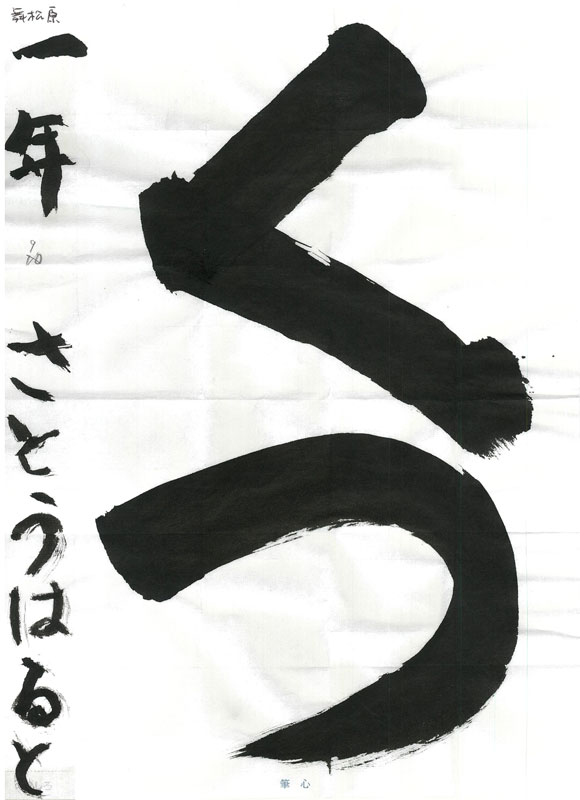 くつ
舞松原
一年 さとうはると
筆心